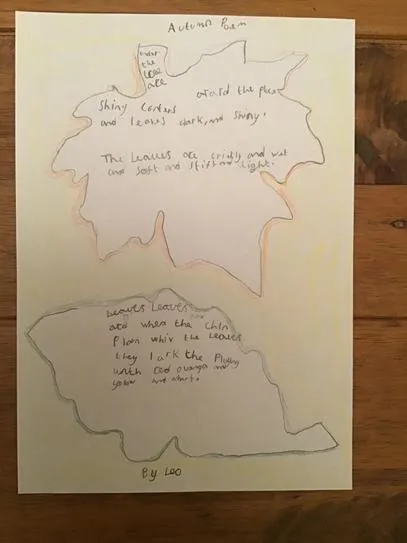 Autumn Poem
the
are
Shiny Conkers arard the place
and leaves dark, and shiny.
The Leaves are crichly and wet
and soft and stiff and Light.
Leaves Leaves
and when the Chln
Plan whiv the Leaves
they Lark the Plyeg
with red oranges and
yelow and
By Leo